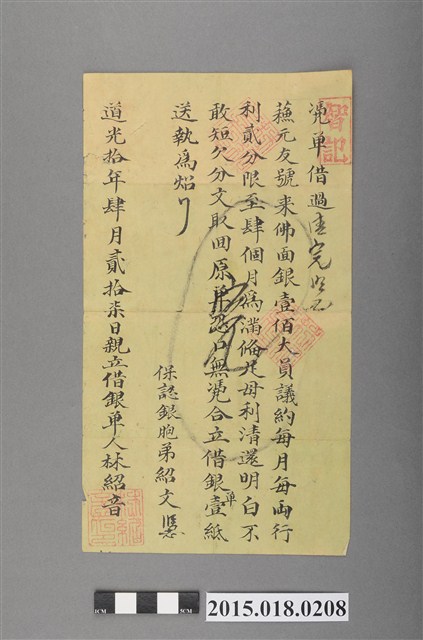 憑单借過
蘓元友號来佛面銀壹佰大員議約每月每両行
利貳分限至肆個月為滿偹足母利清還明白不
敢短欠分文取回原单恐口無憑合立借銀单壹紙
送執為炤
保認銀胞弟紹文
道光拾年肆月貳拾柒日親立借銀单人林紹音
1CM
5CM
2015.018.0208